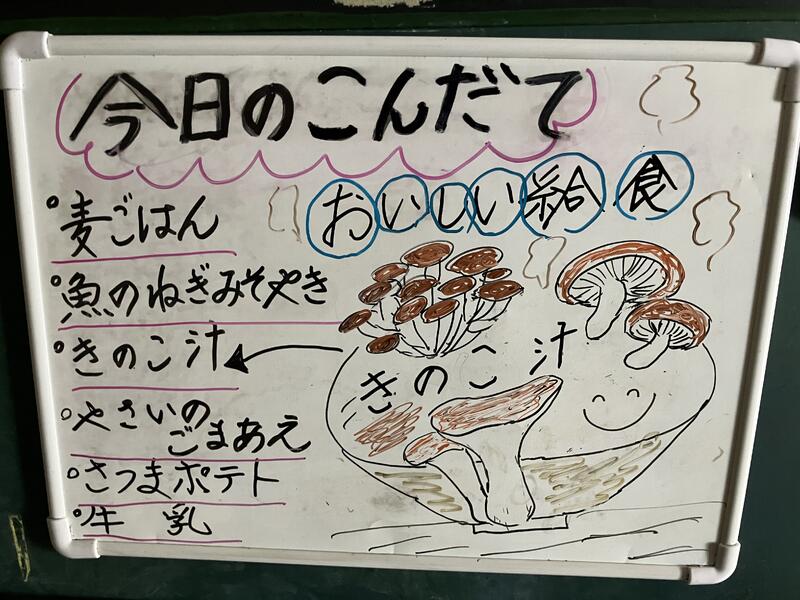 今日のこんだて
おいしい給食
麦ごはん
魚のねぎみそやき
きのこ汁
やさいの
ごまあえ
さつまポテト
牛乳
きのこ汁